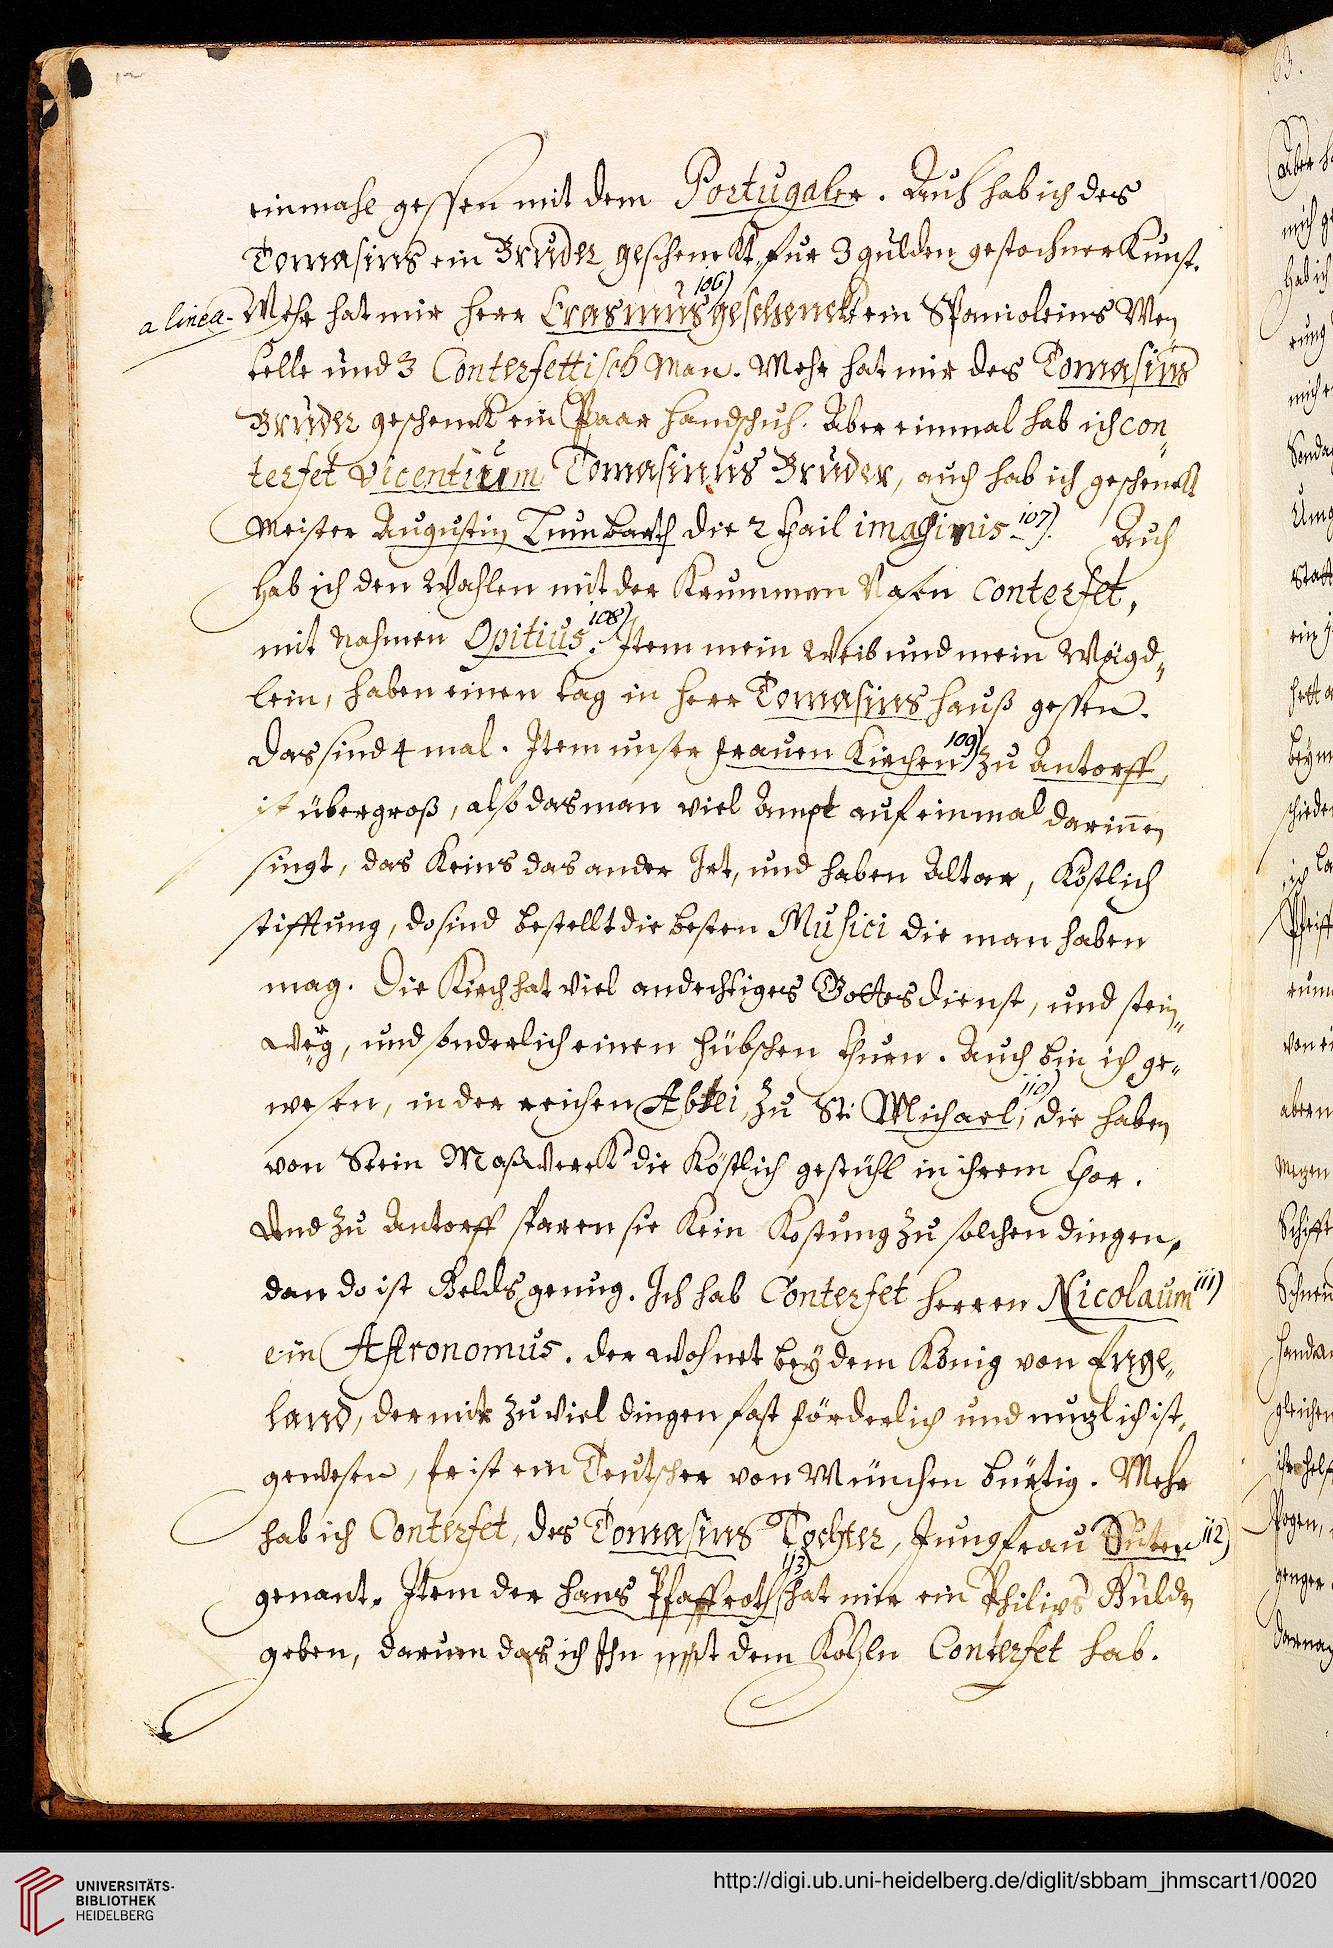 einmahl gessen mit dem Portugaler. Auch hab ich des
Tomasins ein Bruder geschenckt, fur 3 gulden gestochner Kunst.
a linea- Mehr hat mir herr Erasmus 106) geschenckt ein Spanioleins Men
telle und 3 Conterfettisch Man. Mehr hat mir des Tomasins
Bruder geschenckt ein Paar handschuh. Aber einmal hab ich con„
terfet Vicentium Tomasinus Bruder, auch hab ich geschenckt
Meister Augustin Lumbarth die 2 thail imaginis 107). Auch
hab ich den Wahlen mit der Krummen Nasen conterfet,
mit Nahmen Opitius. 108) Item mein Weib und mein Mägd„
lein, haben einen tag in herr Tomasins hauß gessen.
das sind 4 mal. Item unser frauen Kirchen 109) zu Antorff,
ist übergroß, also das man viel Ampt auf einmal darinnen
singt, das Keins das ander Irt, und haben Altar, Köstlich
stifftung, do sind bestellt die besten Musici die man haben
mag. Die Kirch hat viel andechtiges Gottesdienst, und stein„
werg, und sonderlich einen hübschen thurn. Auch bin ich ge„
wesen, in der reichen Abtei, zu St: Michael, 110) die haben
von Stein Maßwerck die Köstlich gestühl in ihrem Chor.
Und zu Antorff sparen sie Kein Kostung zu solchen dingen,
dan do ist Gelds genug. Ich hab Conterfet herren Nicolaum 111)
ein Astronomus. der wohnet bey dem König von Enge„
land, der mir zu viel dingen fast förderlich und nuzlich ist,
gewesen, Er ist ein Teutscher von München bürtig. Mehr
hab ich Conterfet, des Tomasins Tochter, Jungfrau Suter 112)
genant. Item der hans Pfaffroth 113) hat mir ein Philips Gulden
geben, darum das ich Ihn mit dem Kohln Conterfet hab.
63.
UNIVERSITÄTS-
BIBLIOTHEK
HEIDELBERG
http://digi.ub.uni-heidelberg.de/diglit/sbbam_jhmscart1/0020